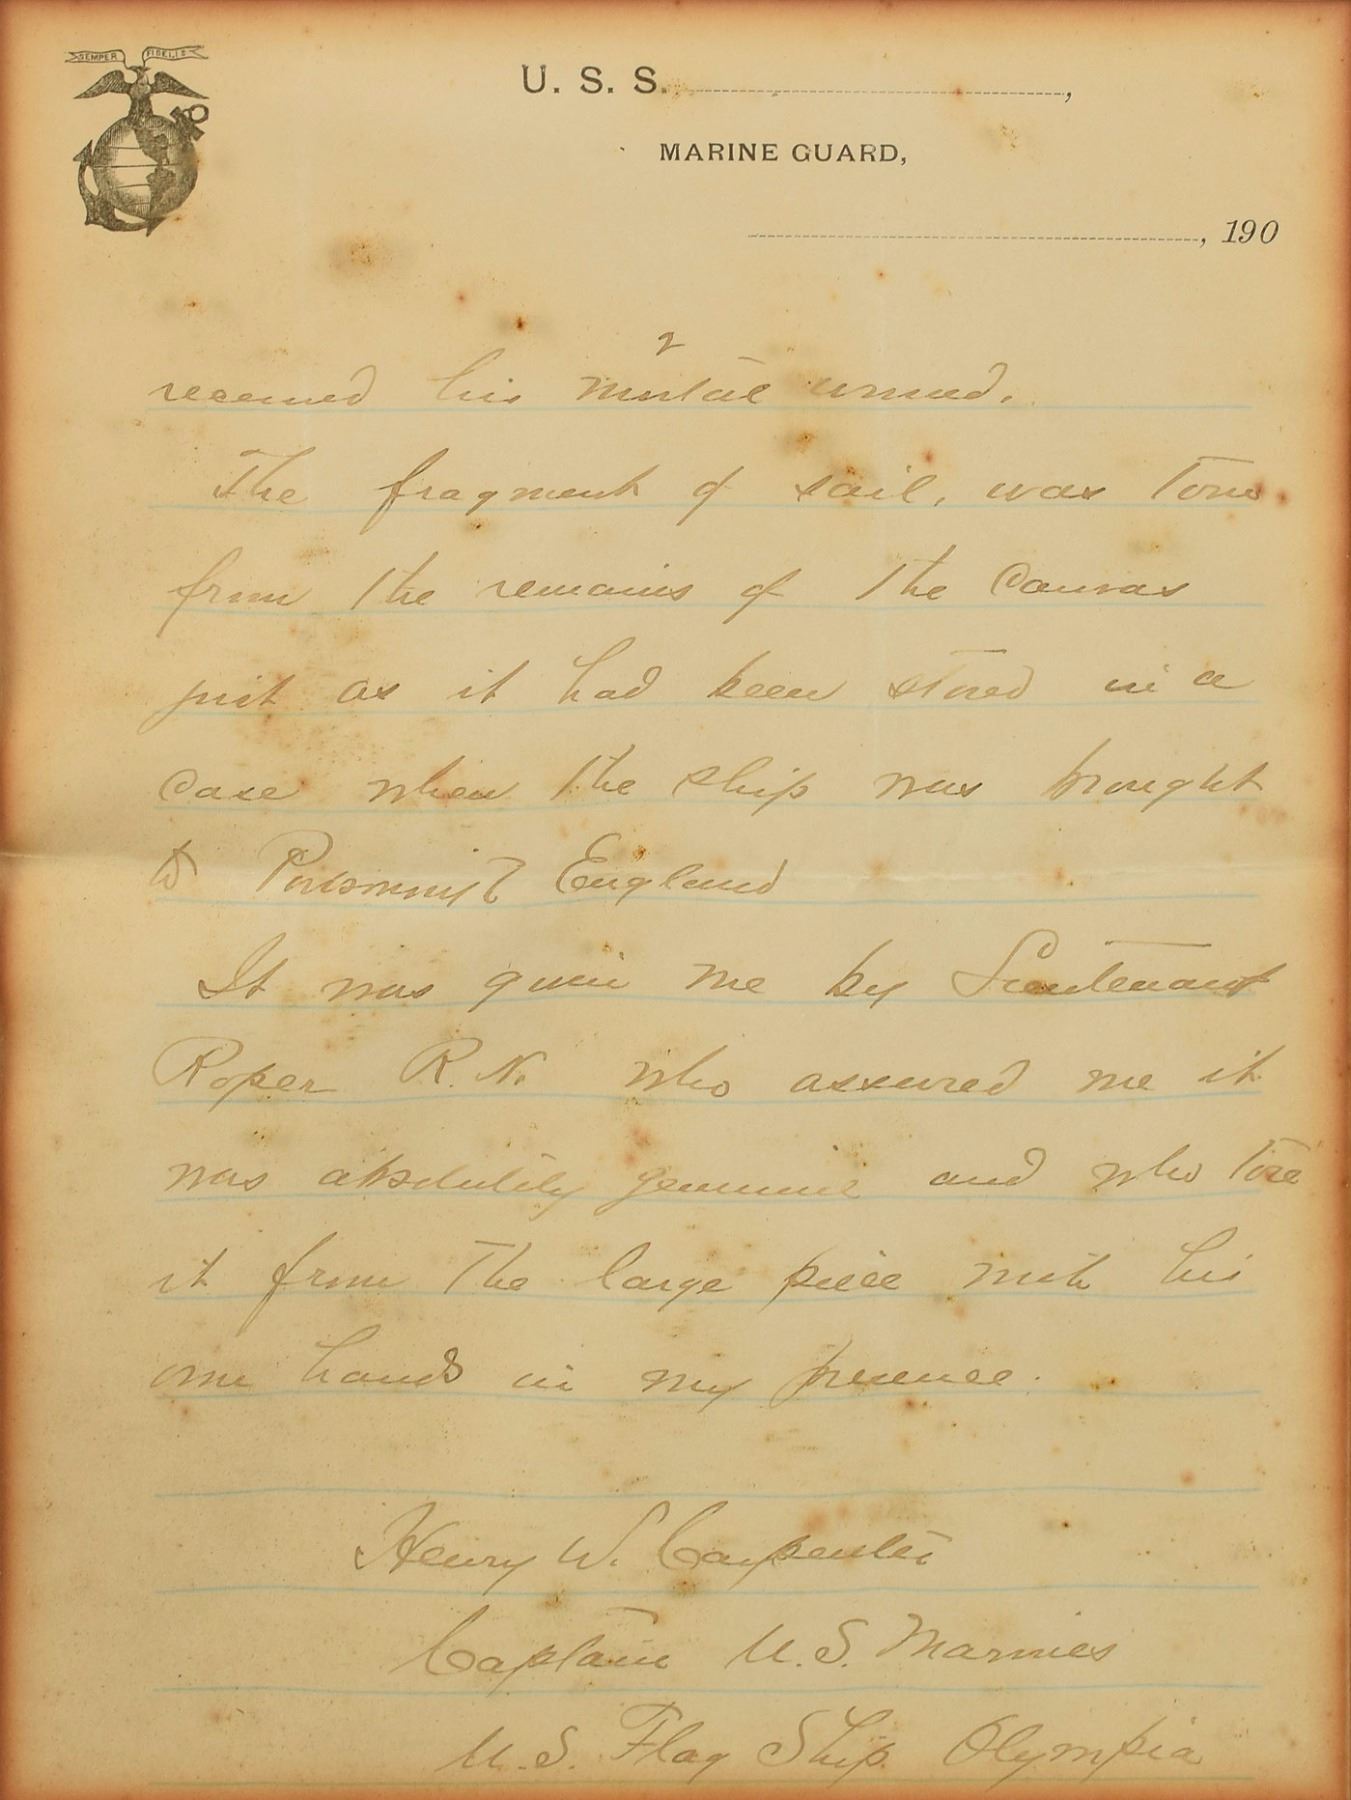 SEMPER FIDELIS
U. S. S. ,
MARINE GUARD,
, 190
2
received his mortal wound.
The fragment of sail, was torn
from the remains of the Canvas
just as it had been stored in a
Case when the ship was brought
to Portsmouth England
It was given me by Lieutenant
Roper R. N. who assured me it
was absolutely genuine and who tore
it from the large piece with his
own hands in my presence.
Henry W. Carpenter
Captain U. S. Marines
U. S. Flag Ship Olympia